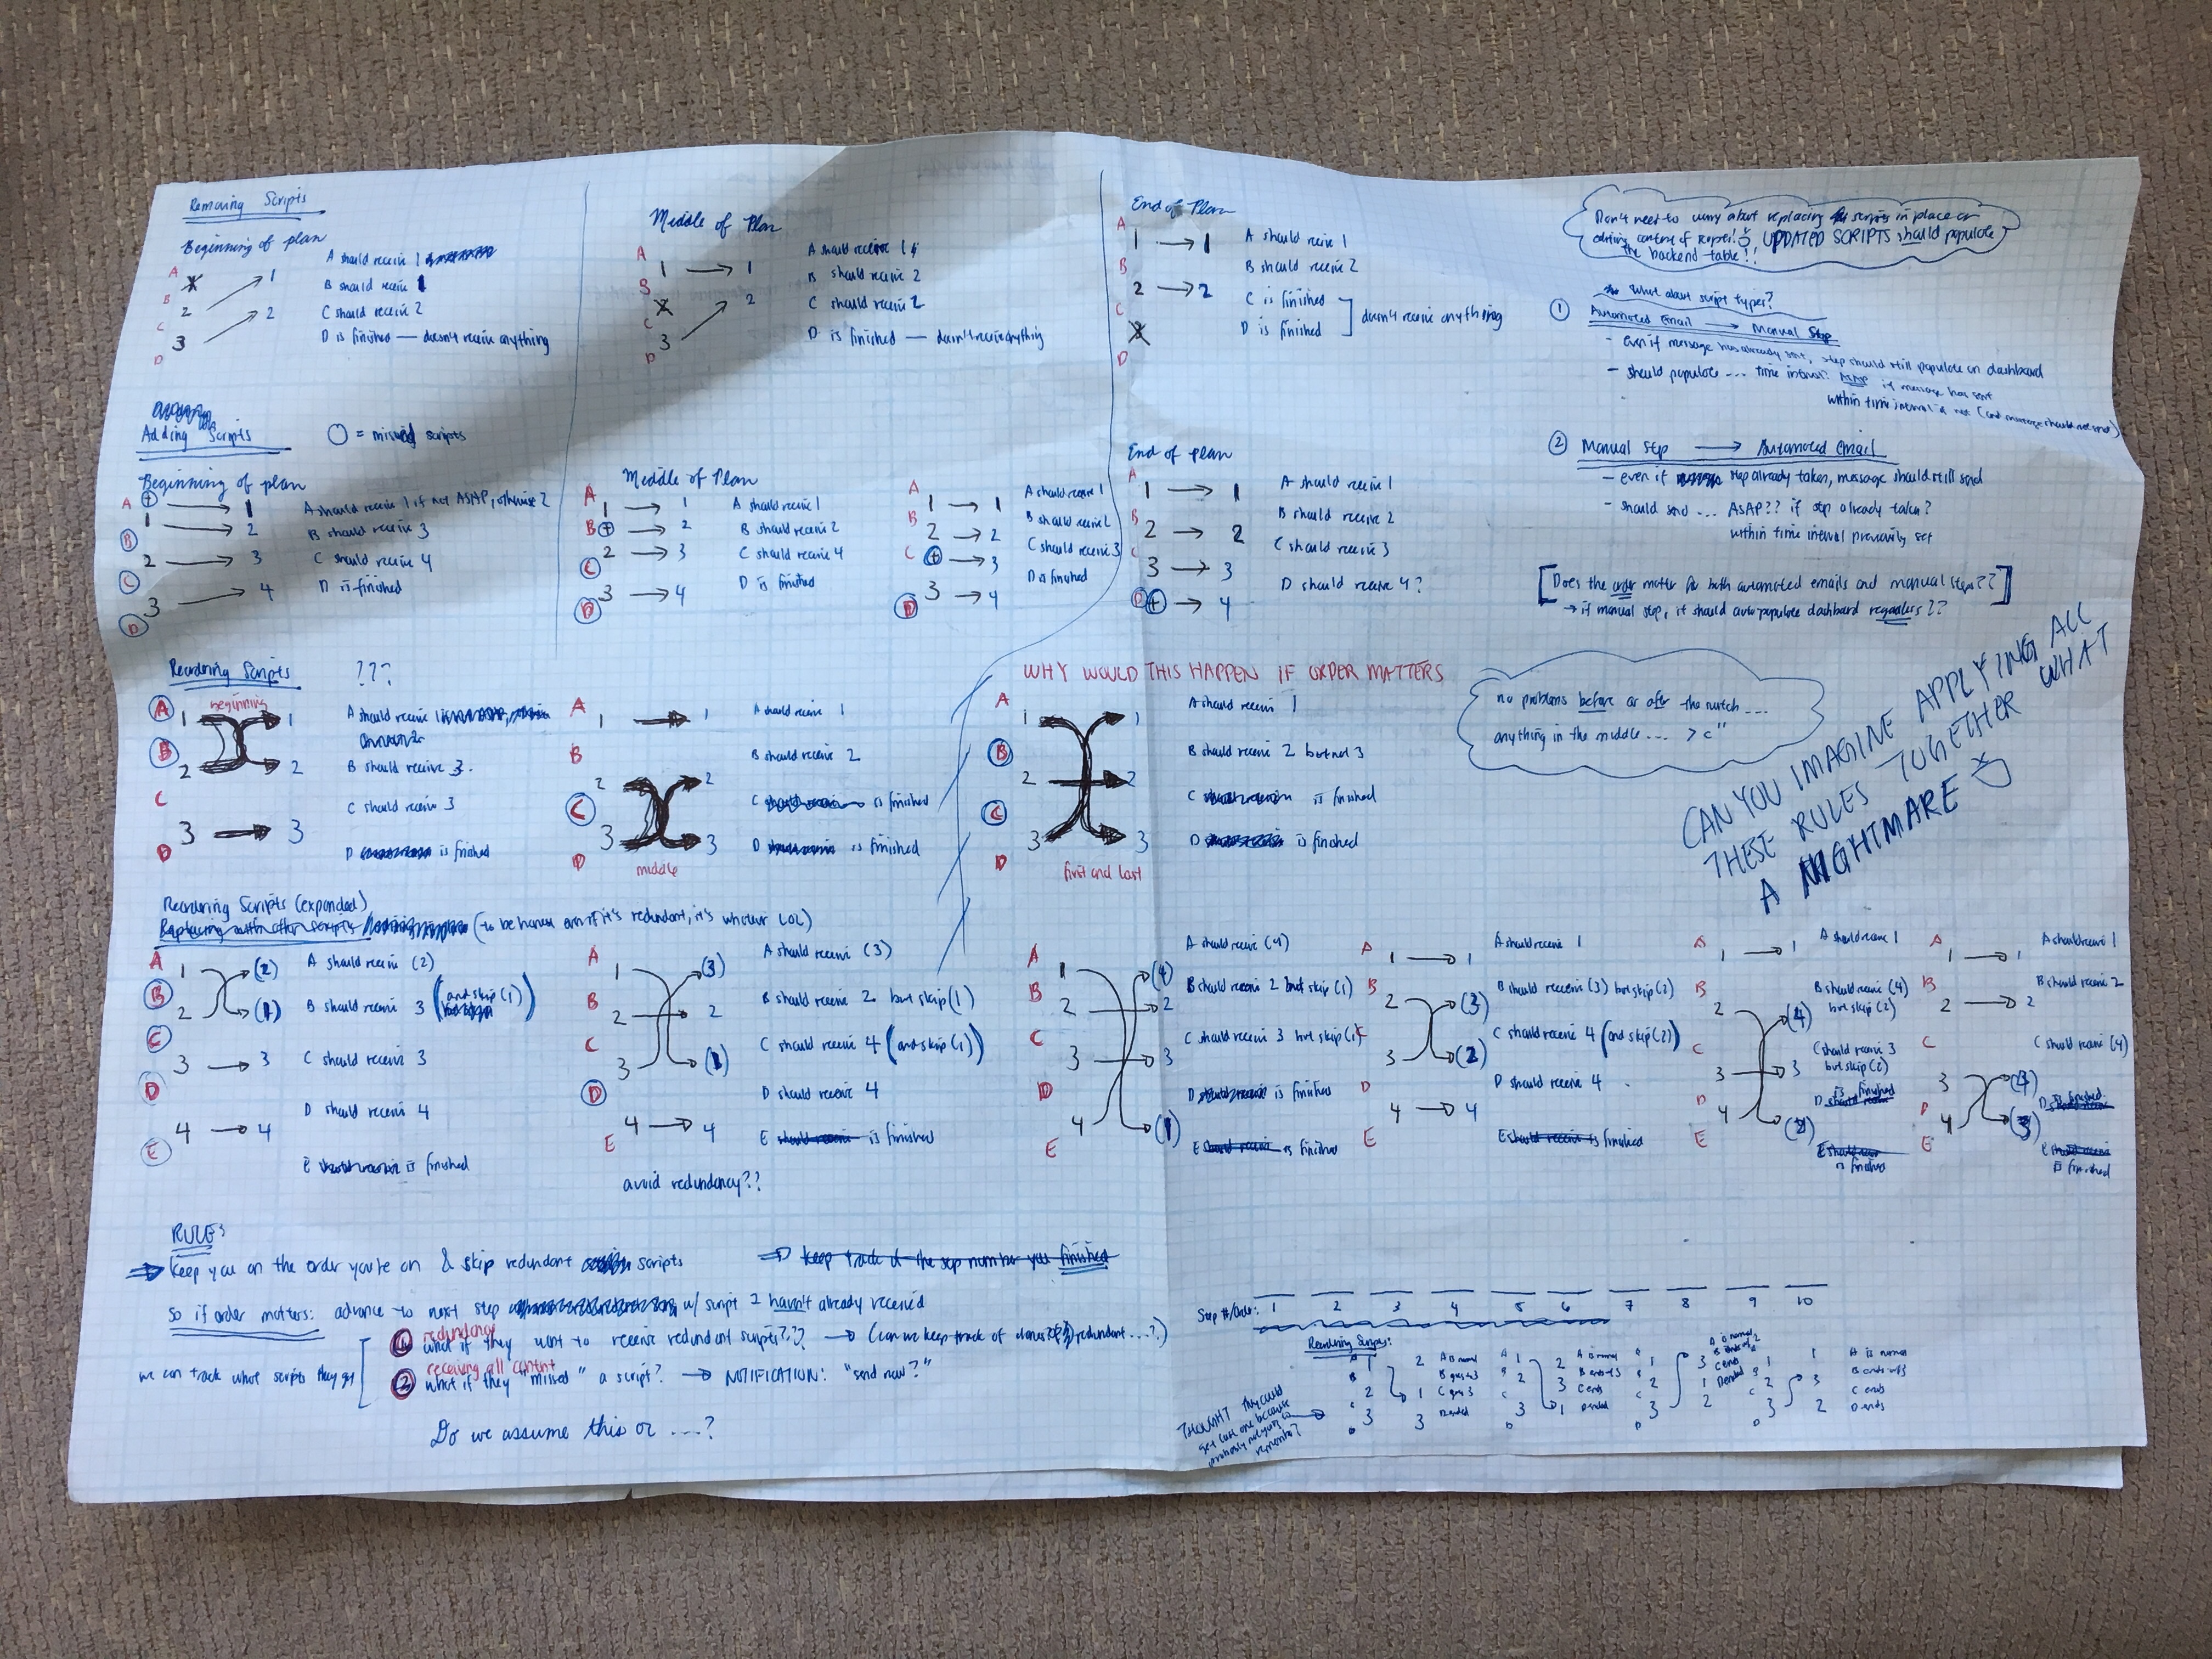 Removing Scripts
Beginning of plan
A
B
C
D
X
2
3
1
2
A should receive 1
B should receive 1
C should receive 2
D is finished — doesn't receive anything
Middle of Plan
A
B
C
D
1
X
3
1
2
A should receive 1
B should receive 2
C should receive 2
D is finished — doesn't receive anything
End of Plan
A
B
C
D
1
2
X
1
2
A should receive 1
B should receive 2
C is finished
D is finished
doesn't receive anything
Don't need to worry about replacing scripts in place or
editing content of scripts! UPDATED SCRIPTS should populate
the backend table!!
What about script types?
1 Automated Email → Manual Step
- even if message has already sent, step should still populate on dashboard
- should populate ... time interval? ASAP if message has sent
within time interval if not (and message should not send)
2 Manual Step → Automated Email
- even if step already taken, message should still send
- should send ... ASAP?? if step already taken?
within time interval previously set
[Does the order matter for both automated emails and manual steps??]
→ if manual step, it should auto populate dashboard regardless??
Adding Scripts
○ = missed scripts
Beginning of plan
A
B
C
D
+
1
2
3
1
2
3
4
A should receive 1 if not ASAP, otherwise 2
B should receive 3
C should receive 4
D is finished
Middle of Plan
A
B
C
D
1
+
2
3
1
2
3
4
A should receive 1
B should receive 2
C should receive 4
D is finished
A
B
C
D
1
2
+
3
1
2
3
4
A should receive 1
B should receive 2
C should receive 3
D is finished
End of plan
A
B
C
D
1
2
3
+
1
2
3
4
A should receive 1
B should receive 2
C should receive 3
D should receive 4?
Reordering Scripts ???
beginning
A
B
C
D
1
2
3
1
2
3
A should receive 1
B should receive 3.
C should receive 3
D is finished
A
B
C
D
1
2
3
1
2
3
middle
A should receive 1
B should receive 2
C should receive is finished
D is finished
WHY WOULD THIS HAPPEN IF ORDER MATTERS
A
B
C
D
1
2
3
1
2
3
first and last
A should receive 1
B should receive 2 but not 3
C is finished
D is finished
no problems before or after the switch ...
anything in the middle ... >c"
CAN YOU IMAGINE APPLYING ALL
THESE RULES TOGETHER WHAT
A NIGHTMARE
Reordering Scripts (expanded)
(to be honest even if it's redundant, it's whatever LOL)
A
B
C
D
E
1
2
3
4
(2)
(1)
3
4
A should receive (2)
B should receive 3 (and skip (1))
C should receive 3
D should receive 4
E should receive is finished
A
B
C
D
E
1
2
3
4
(3)
2
(1)
4
A should receive (3)
B should receive 2 but skip (1)
C should receive 4 (and skip (1))
D should receive 4
E should receive is finished
avoid redundancy??
A
B
C
D
E
1
2
3
4
(4)
2
3
(1)
A should receive (4)
B should receive 2 but skip (1)
C should receive 3 but skip (1)
D should receive is finished
E should receive is finished
A
B
D
E
1
2
3
4
1
(3)
(2)
4
A should receive 1
B should receive (3) but skip (2)
C should receive 4 (and skip (2))
D should receive 4
E should receive is finished
A
B
C
D
E
1
2
3
4
1
(4)
3
(2)
A should receive 1
B should receive (4)
but skip (2)
C should receive 3
but skip (2)
D should receive
is finished
E should receive
is finished
A
B
C
D
E
1
2
3
4
1
2
(4)
(3)
A should receive 1
B should receive 2
C should receive (4)
D is finished
E should receive
is finished
RULES
⇒ Keep you on the order you're on & skip redundant scripts
⇒ keep track of the step number you finished
so if order matters: advance to next step w/ script I haven't already received
we can track what scripts they get
redundancy
1 what if they want to receive redundant scripts??? → (can we keep track of redundant ...?)
receiving all content
2 what if they "missed" a script? → NOTIFICATION: "send now?"
Do we assume this or ....?
Step #/Order: 1 2 3 4 5 6 7 8 9 10
Reordering Scripts:
A
B
C
D
1
2
3
2
1
3
A is normal
B goes to 3
C goes 3
D ended
1
2
3
2
3
1
A is normal
B ends at 3
C ends
D ended
1
2
3
3
1
2
A is normal
C ends
D ended
1
2
3
1
3
2
A is normal
B ends w/3
C ends
D ends
THOUGHT they could
get last one because